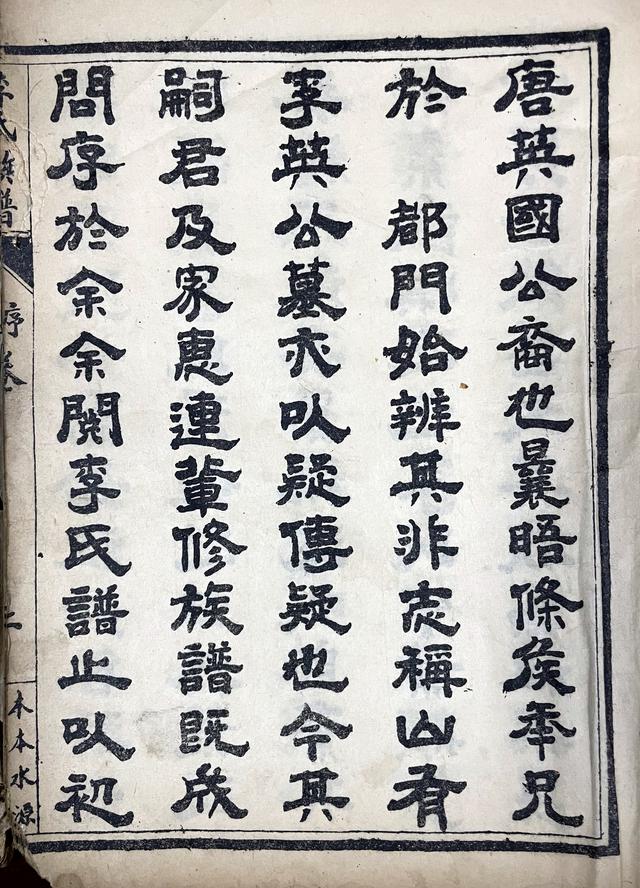 唐英國公裔也曩晤條侯年兄
於 都門始辨其非志稱山有
李英公墓亦以疑傳疑也今其
嗣君及家惠連輩修族譜既成
問序於余余閱李氏譜止以初
李氏族譜
序 卷
本本水源